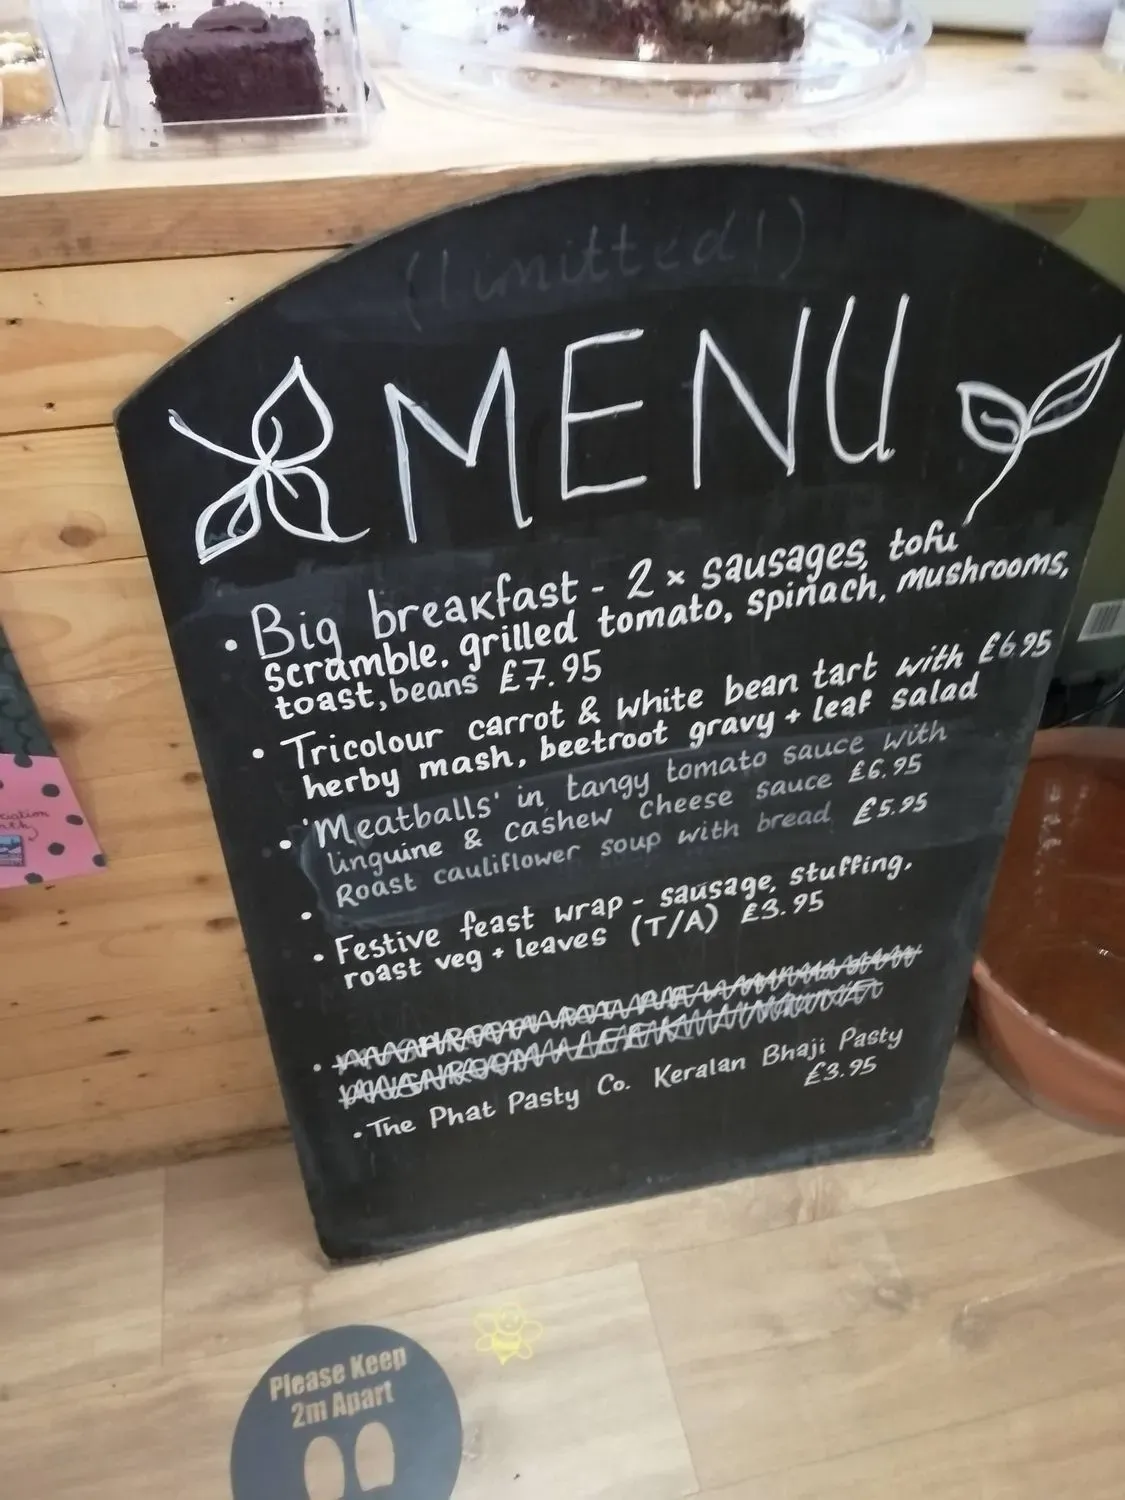 (limitted!)
MENU
• Big breakfast - 2 x sausages, tofu
scramble, grilled tomato, spinach, mushrooms,
toast, beans £7.95
• Tricolour carrot & white bean tart with £6.95
herby mash, beetroot gravy + leaf salad
• 'Meatballs' in tangy tomato sauce with
linguine & cashew cheese sauce £6.95
• Roast cauliflower soup with bread £5.95
• Festive feast wrap - sausage, stuffing,
roast veg + leaves (T/A) £3.95
• The Phat Pasty Co. Keralan Bhaji Pasty
£3.95
Please Keep
2m Apart